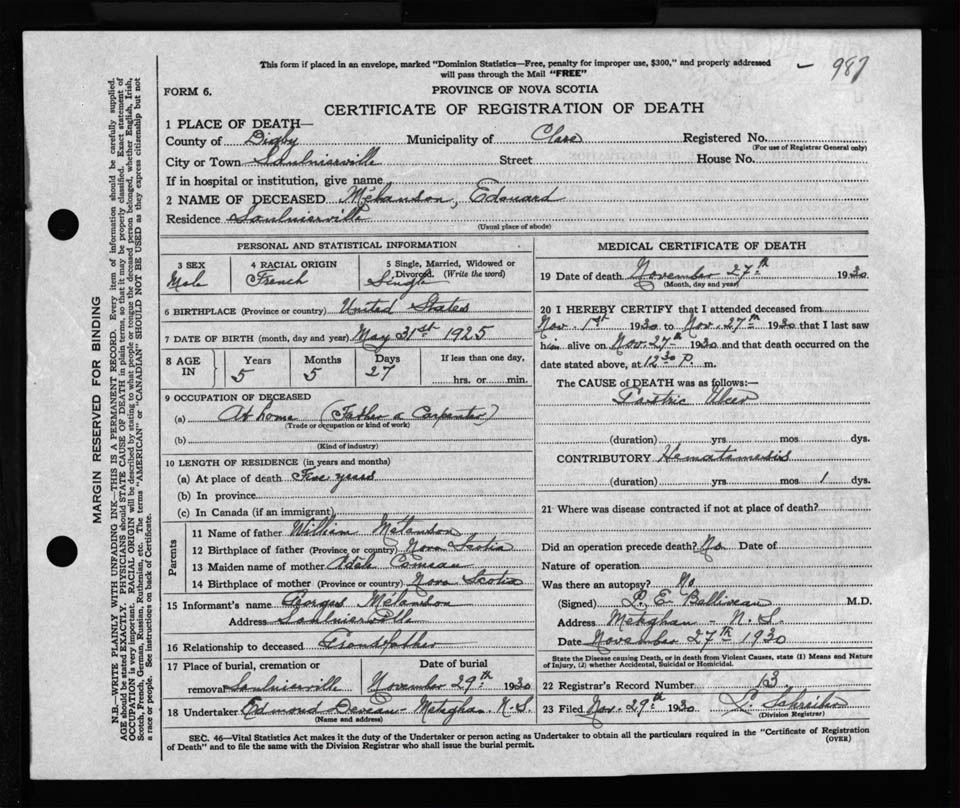 This form if placed in an envelope, marked "Dominion Statistics—Free, penalty for improper use, $300," and properly addressed
will pass through the Mail "FREE"
– 987
FORM 6.
PROVINCE OF NOVA SCOTIA
CERTIFICATE OF REGISTRATION OF DEATH
1 PLACE OF DEATH—
County of Digby Municipality of Clare Registered No.
(For use of Registrar General only)
City or Town Saulnierville Street House No.
If in hospital or institution, give name
2 NAME OF DECEASED Mélanson, Edouard
Residence Saulnierville
(Usual place of abode)
PERSONAL AND STATISTICAL INFORMATION
3 SEX 4 RACIAL ORIGIN 5 Single, Married, Widowed or
Divorced. (Write the word)
Male French Single
6 BIRTHPLACE (Province or country) United States
7 DATE OF BIRTH (month, day and year) May 31st 1925
8 AGE IN Years Months Days If less than one day,
5 5 27 hrs. or min.
9 OCCUPATION OF DECEASED
(a) At home (Father a Carpenter)
(Trade or occupation or kind of work)
(b)
(Kind of industry)
10 LENGTH OF RESIDENCE (in years and months)
(a) At place of death Five years
(b) In province
(c) In Canada (if an immigrant)
Parents
11 Name of father William Mélanson
12 Birthplace of father (Province or country) Nova Scotia
13 Maiden name of mother Adele Comeau
14 Birthplace of mother (Province or country) Nova Scotia
15 Informant's name Mélanson
Address Saulnierville
16 Relationship to deceased Grandfather
17 Place of burial, cremation or Date of burial
removal Saulnierville November 29th 1930
18 Undertaker Edmond Deveau - Meteghan N.S.
(Name and address)
MEDICAL CERTIFICATE OF DEATH
19 Date of death November 27th 1930
(Month, day and year)
20 I HEREBY CERTIFY that I attended deceased from
Nov. 1st 1930 to Nov. 27th 1930 that I last saw
him alive on Nov. 27th 1930 and that death occurred on the
date stated above, at 12 30 P. m.
The CAUSE of DEATH was as follows:—
Gastric Ulcer
(duration) yrs mos dys.
CONTRIBUTORY Hematemesis
(duration) yrs mos 1 dys.
21 Where was disease contracted if not at place of death?
Did an operation precede death? No Date of
Nature of operation
Was there an autopsy? No
(Signed) L. E. Belliveau M.D.
Address Meteghan - N.S.
Date November 27th 1930
State the Disease causing Death, or in death from Violent Causes, state (1) Means and Nature
of Injury, (2) whether Accidental, Suicidal or Homicidal.
22 Registrar's Record Number 13
23 Filed Nov. 29th 1930
(Division Registrar)
SEC. 46—Vital Statistics Act makes it the duty of the Undertaker or person acting as Undertaker to obtain all the particulars required in the "Certificate of Registration
of Death" and to file the same with the Division Registrar who shall issue the burial permit.
(OVER)
MARGIN RESERVED FOR BINDING
N.B.—WRITE PLAINLY WITH UNFADING INK—THIS IS A PERMANENT RECORD. Every item of information should be carefully supplied.
AGE should be stated EXACTLY. PHYSICIANS should STATE CAUSE OF DEATH in plain terms, so that it may be properly classified. Exact statement of
OCCUPATION is very important. RACIAL ORIGIN will be described by stating to what people or tongue the deceased person belonged, whether English, Irish,
Scotch, French, German, Russian, Ruthenian, etc. The terms "AMERICAN" or "CANADIAN" SHOULD NOT BE USED as they express citizenship but not
a race or people. See instructions on back of Certificate.